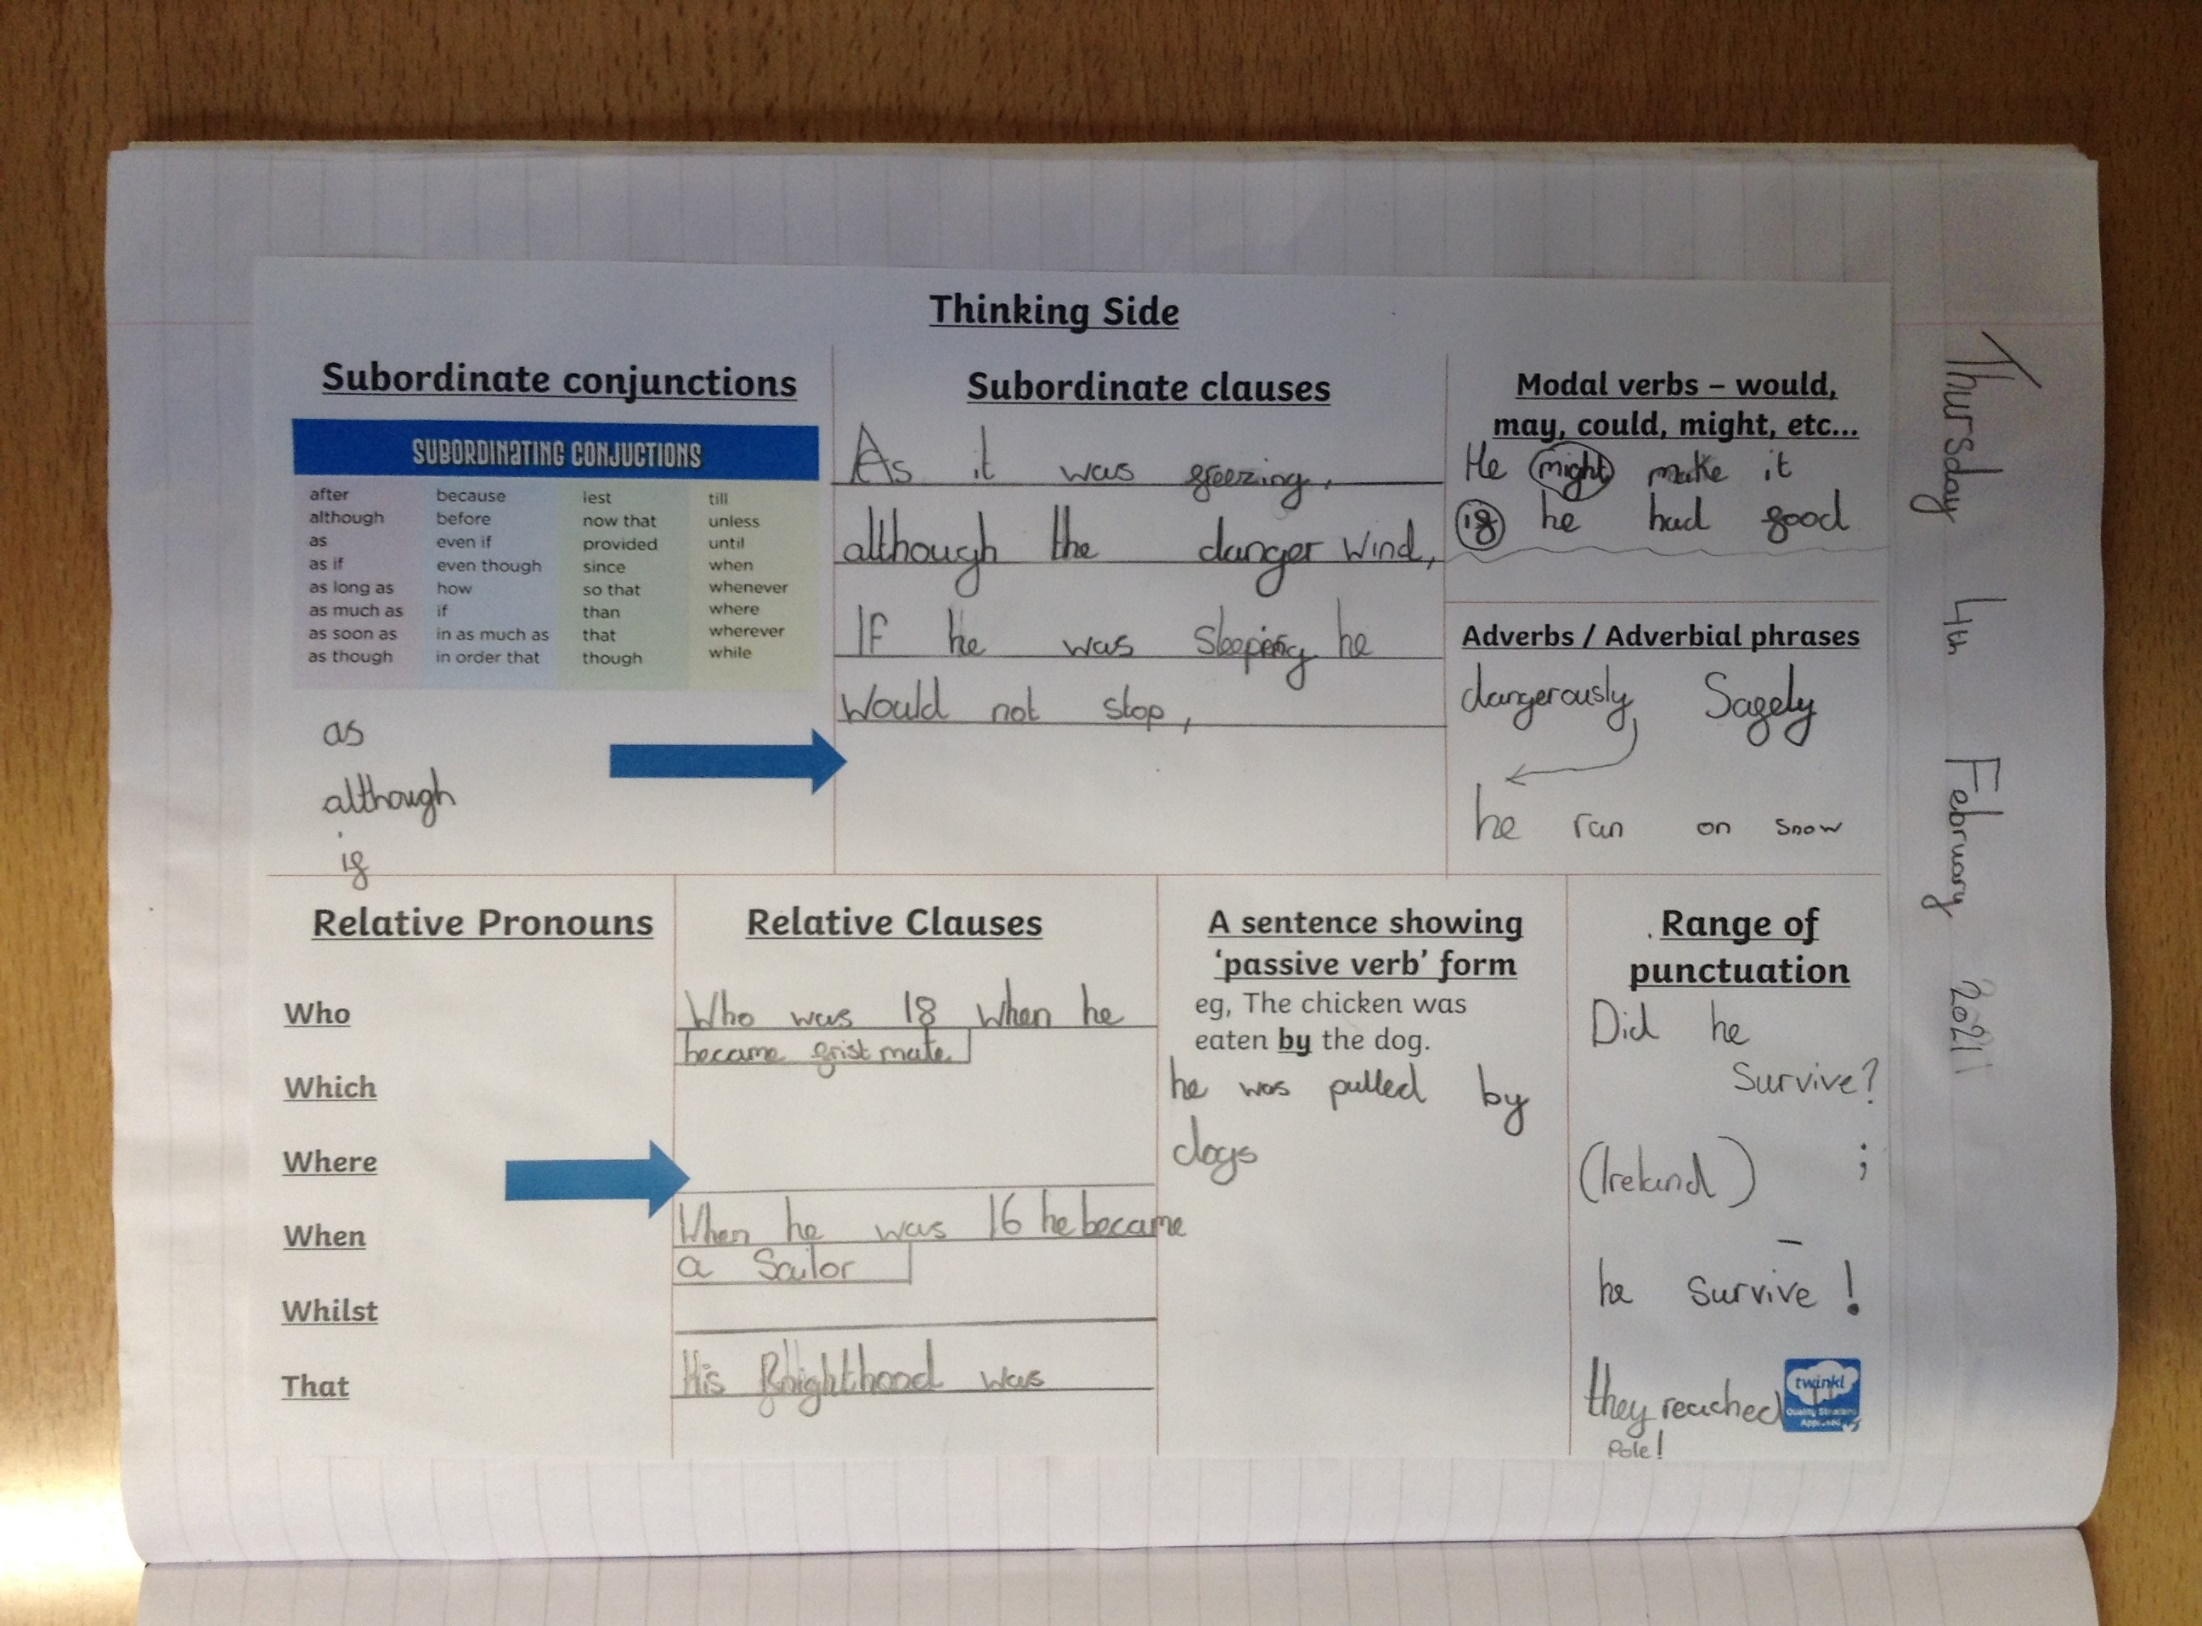 Thinking Side
Subordinate conjunctions
SUBORDINATING CONJUCTIONS
after because lest till
although before now that unless
as even if provided until
as if even though since when
as long as how so that whenever
as much as if than where
as soon as in as much as that wherever
as though in order that though while
as
although
if
Subordinate clauses
As it was freezing,
although the danger wind,
If he was sleeping he
would not stop,
Modal verbs – would,
may, could, might, etc...
He might make it
if he had good
Adverbs / Adverbial phrases
dangerously, Safely
he ran on snow
Relative Pronouns
Who
Which
Where
When
Whilst
That
Relative Clauses
Who was 18 when he
became first mate
When he was 16 he became
a Sailor
His Knighthood was
A sentence showing
‘passive verb’ form
eg, The chicken was
eaten by the dog.
he was pulled by
dogs
Range of
punctuation
Did he
Survive?
(Ireland) ;
–
he Survive!
they reached
Pole!
twinkl
Thursday 4th February 2021